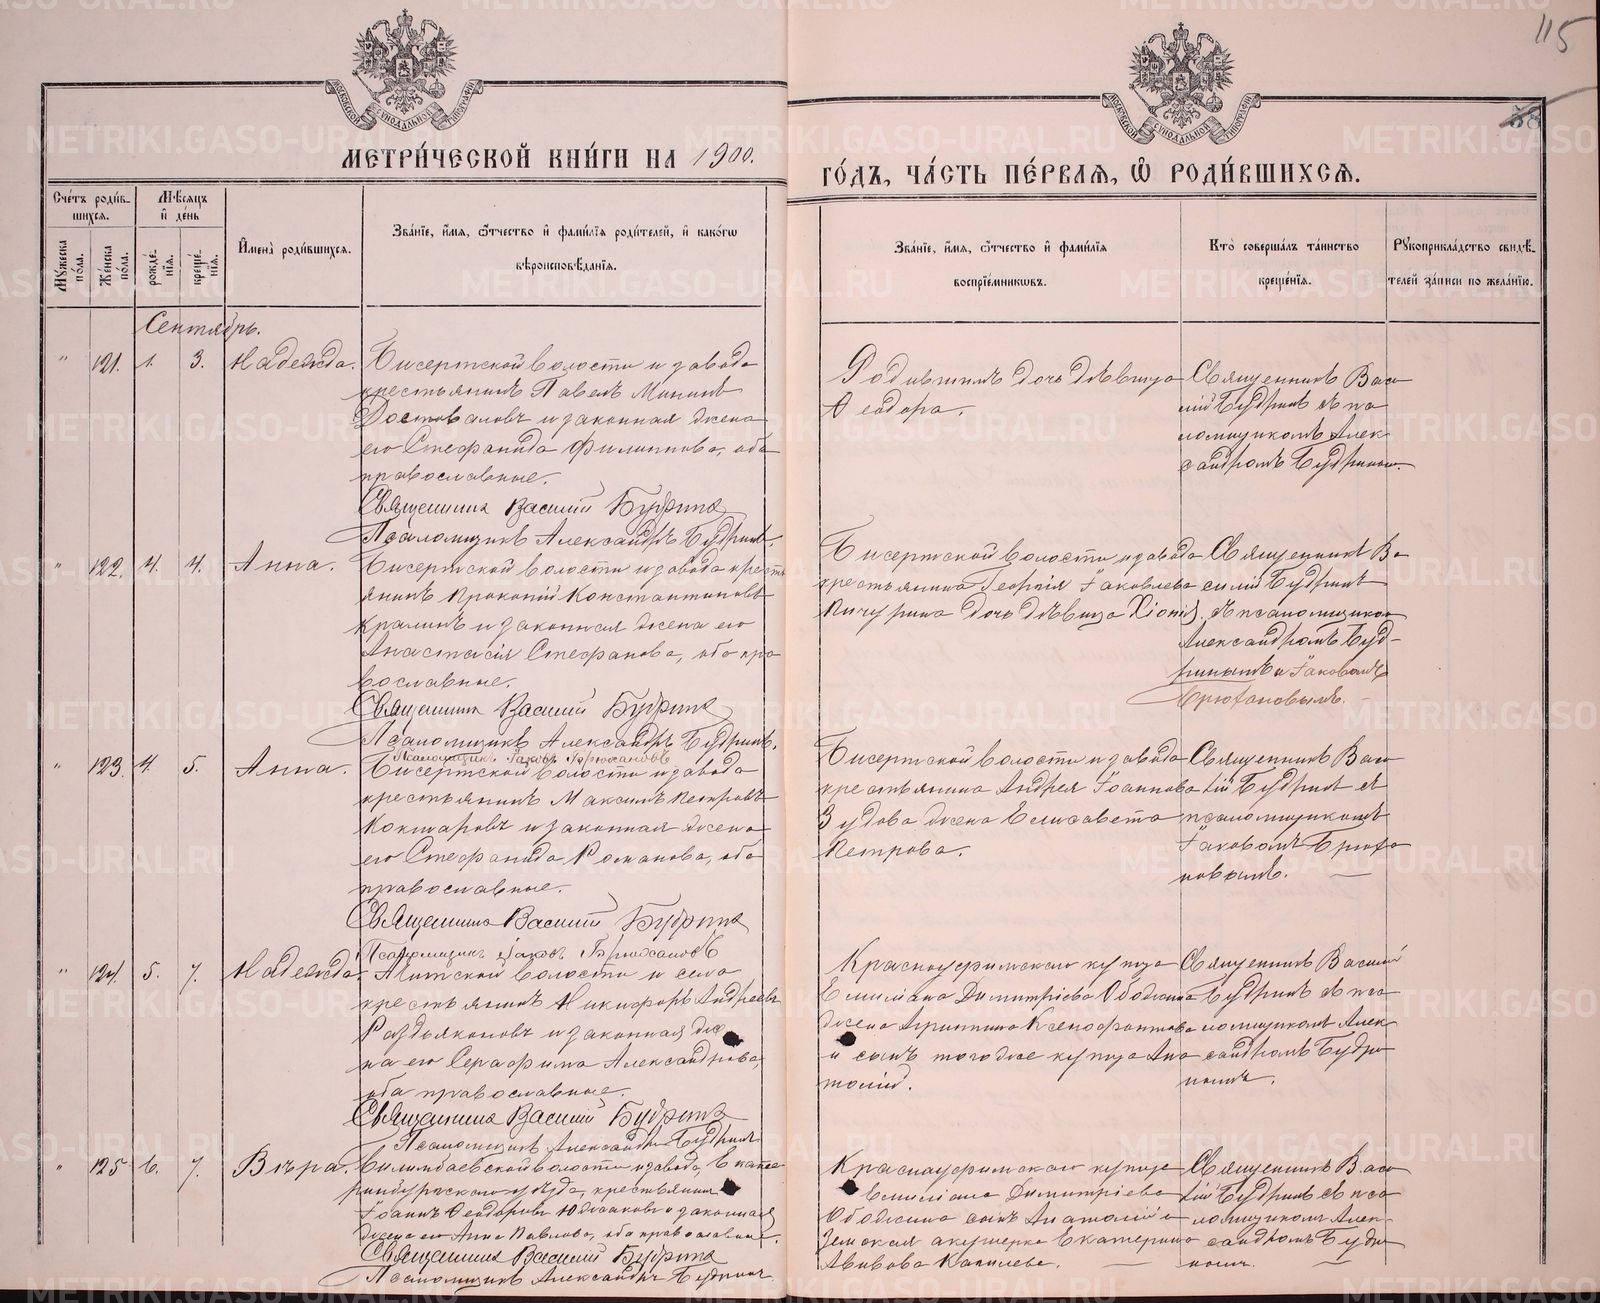 115
38
МЕТРИ́ЧЕСКОЙ КНИ́ГИ НА 1900.
ГО́ДЪ, ЧА́СТЬ ПЕ́РВАЯ, Ѡ҆ РОДИ́ВШИХСѦ.
Сче́тъ роди́вшихся.
Мѣ́сяцъ и҆ де́нь
Му́жеска по́ла.
Же́нска по́ла.
рожде́нїя.
креще́нїя.
И҆мена̀ роди́вшихся.
Зва́нїе, и҆́мя, ѻ҆́тчество и҆ фами́лїя роди́телей, и҆ како́гѡ
вѣроисповѣ́данїя.
Зва́нїе, и҆́мя, ѻ҆́тчество и҆ фами́лїя
воспрїе́мникѡвъ.
Кто̀ соверша́лъ та́инство
креще́нїя.
Рукоприкла́дство свидѣ́телей за́писи по жела́нїю.
Сентябрь.
" 121. 1. 3. Надежда.
Бисертской волости и завода
крестьянинъ Павелъ Мининъ
Достоваловъ и законная жена
его Стефанида Филиппова, оба
православные.
Священникъ Василий Будринъ
Псаломщикъ Александръ Будринъ.
Родившимъ дочь дѣвица
Ѳеодора.
Священникъ Васи
лій Будринъ съ пса
ломщикомъ Алек
сандромъ Будринымъ.
" 122. 4. 4. Анна.
Бисертской волости и завода кресть
янинъ Прокопій Константиновъ
Кралинъ и законная жена его
Анастасія Стефанова, оба пра
вославные.
Священникъ Василий Будринъ
Псаломщикъ Александръ Будринъ.
Псаломщикъ Іаковъ Брюхановъ
Бисертской волости и завода
крестьянина Георгія Іаковлева
Пичугина дочь дѣвица Хіонія.
Священникъ Ва
силій Будринъ
съ псаломщикомъ
Александромъ Буд-
ринымъ и Іаковомъ
Брюхановымъ.
" 123. 4. 5. Анна.
Бисертской волости и завода
крестьянинъ Максимъ Петровъ
Кокшаровъ и законная жена
его Стефанида Романова, оба
православные.
Священникъ Василий Будринъ
Псаломщикъ Іаковъ Брюхановъ
Бисертской волости и завода
крестьянина Андрея Іоаннова
Зудова жена Елисавета
Петрова.
Священникъ Васи
лій Будринъ съ
псаломщикомъ
Іаковомъ Брюха
новымъ.
" 124. 5. 7. Надежда.
Ачитской волости и села
крестьянинъ Никифоръ Андреевъ
Раздьяконовъ и законная же
на его Серафима Александрова,
оба православные.
Священникъ Василий Будринъ
Псаломщикъ Александръ Будринъ
Красноуфимскаго купца
Емиліана Димитріева Ободкина
жена Агриппина Ксенофонтова
и сынъ того же купца Ана
толій.
Священникъ Василій
Будринъ съ пса
ломщикомъ Алек
сандромъ Будри
нымъ.
" 125 6. 7. Вѣра.
Билимбаевской волости и завода, Екате
ринбургскаго уѣзда, крестьянинъ
Іоаннъ Ѳеодоровъ Южаковъ и законная
жена его Анна Павлова, оба православные.
Священникъ Василий Будринъ
Псаломщикъ Александръ Будринъ
Красноуфимскаго купца
Емиліана Димитріева
Ободкина сынъ Анатолій и
Земская акушерка Екатерина
Авивова Копылева.
Священникъ Васи
лій Будринъ съ пса
ломщикомъ Алек-
сандромъ Будри
нымъ.
METRIKI.GASO-URAL.RU